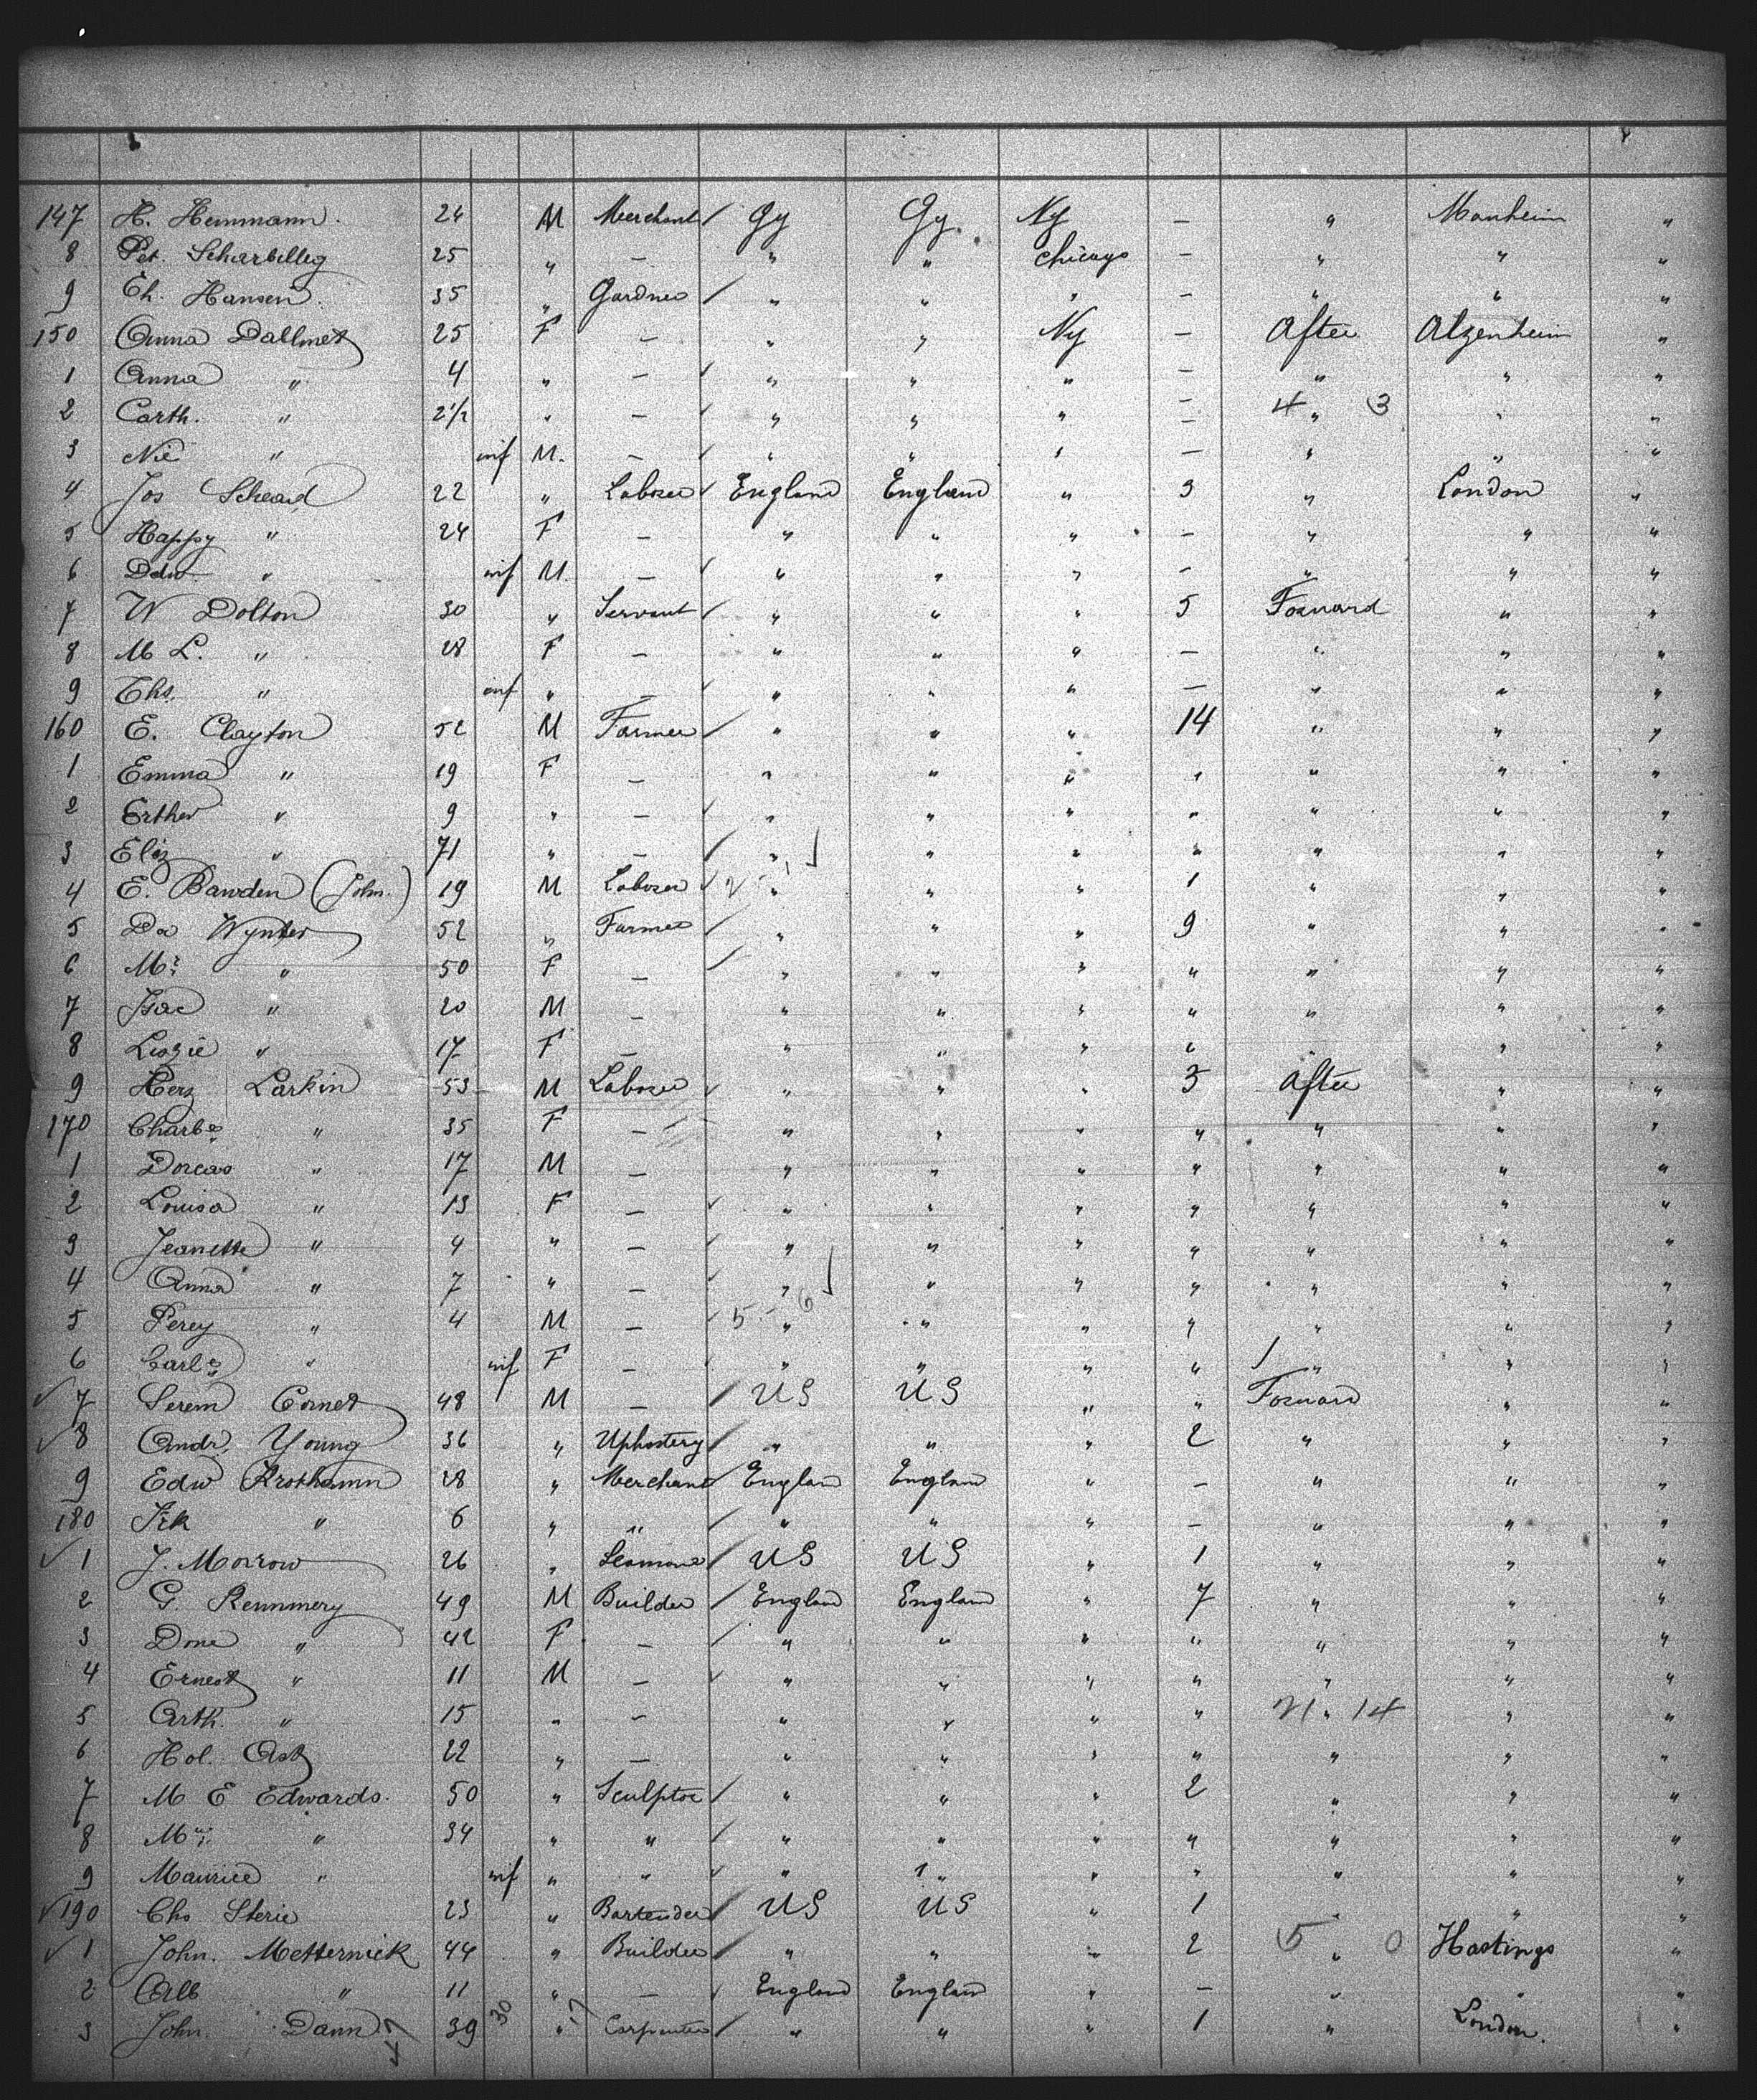 147 H. Hemmann. 24 M Merchant / Gy Gy. Ny — " Manheim "
8 Pet. Scharbilleg 25 " — " " Chicago — " " "
9 Ch. Hansen. 35 " Gardner / " " " — " " "
150 Anna Dallmet 25 F — " " Ny — After Alzenheim "
1 Anna " 4 " — " " " — " " "
2 Carth. " 2 1/2 " — " " " — 4 " 3 " "
3 Nic " inf M. — " " " — " " "
4 Jos Scheard 22 " Laborer England England " 3 " London "
5 Happy " 24 F — " " " — " " "
6 Edw " inf M. — " " " — " " "
7 W Dolton 30 " Servant / " " " 5 Forward " "
8 M L. " 28 F — " " " — " " "
9 Chs. " inf " — " " " — " " "
160 E. Clayton 52 M Farmer / " " " 14 " " "
1 Emma " 19 F — " " " " " " "
2 Erther " 9 " — " " " " " " "
3 Eliz " 71 " — / " " " " " " "
4 E. Bawden (John.) 19 M Laborer " " " 1 " " "
5 Da Wynter 52 " Farmer / " " " 9 " " "
6 Mrs " 50 F — / " " " " " " "
7 Isac " 20 M — " " " " " " "
8 Lizzie " 17 F — " " " " " " "
9 Herz Larkin 53 M Laborer " " " 3 After " "
170 Charl " 35 F — " " " " " " "
1 Dorcas " 17 M — " " " " " " "
2 Louisa " 13 F — " " " " " " "
3 Jeanette " 4 " — " " " " " " "
4 Anna " 7 " — " " " " " " "
5 Percy " 4 M — 5 - 6 " " " " " " "
6 Carl " inf F — " " " " / " " "
7 Serem Cornet 48 M — / US US " " Forward " "
8 Andr. Young 36 " Uphostery / " " " 2 " " "
9 Edw Krothamn 28 " Merchant England England " — " " "
180 Frk " 6 " " / " " " — " " "
1 J. Morrow 26 " Seaman / US US " 1 " " "
2 G. Remmery 49 M Builder / England England " 7 " " "
3 Done " 42 F — / " " " " " " "
4 Ernest " 11 M — " " " " " " "
5 Arth. " 15 " — " " " " 21 " 14 " "
6 Hol. Ask 22 " — " " " " " " "
7 M E Edwards. 50 " Sculptor / " " " 2 " " "
8 Mrs " 34 " " / " " " " " " "
9 Maurice " inf " " " " " " " " "
190 Chs Sterie 23 " Bartender / US US " 1 " " "
1 John. Metternick 44 " Builder / " " " 2 5 " 0 Hastings "
2 Alb " 11 " — England England " — " " "
3 John. Dann 39 30 " 17 Carpenter / " " " 1 " London. "